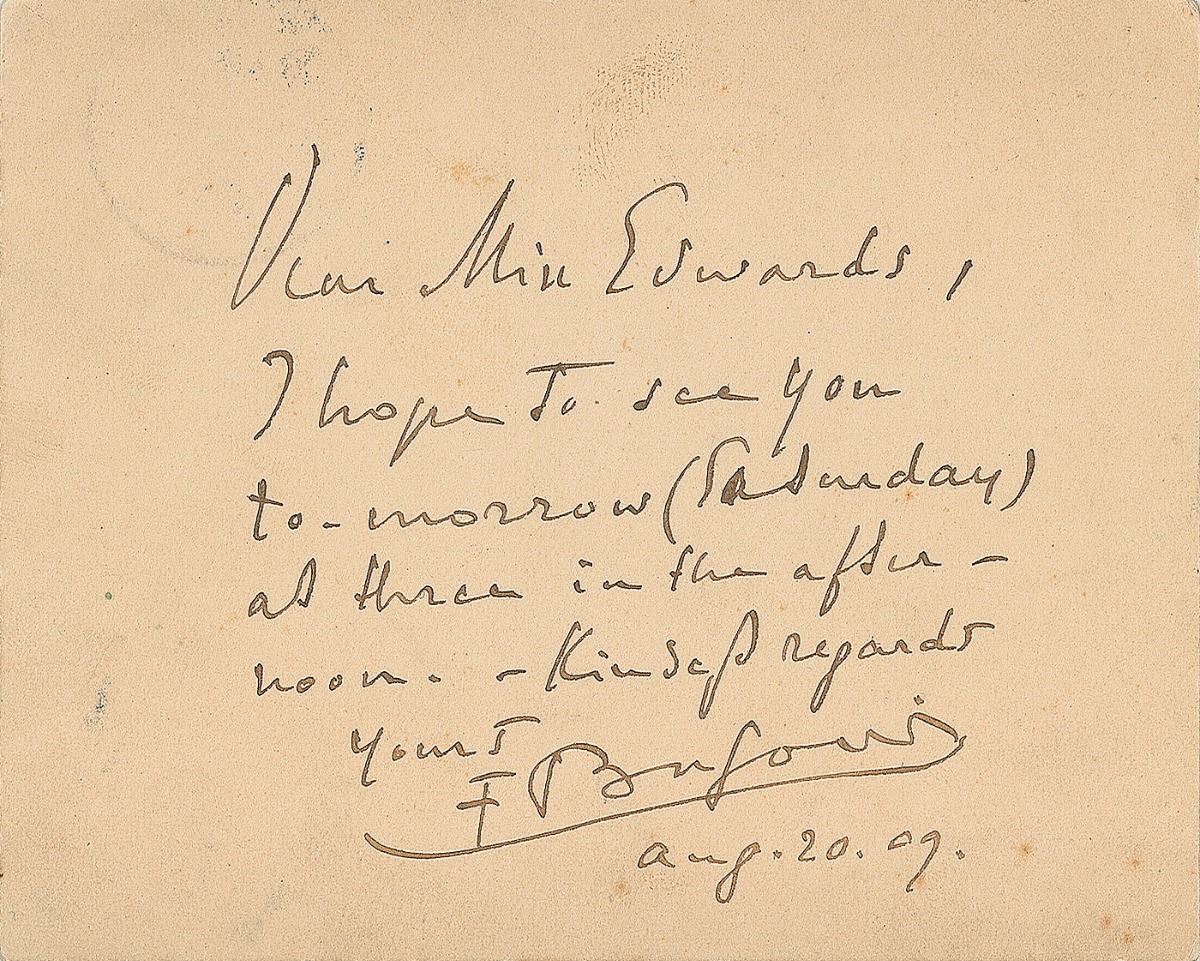 Dear Miss Edwards,
I hope to see you
to-morrow (Saturday)
at three in the after-
noon. - Kindest regards
yours
F Busoni
Aug. 20. 09.